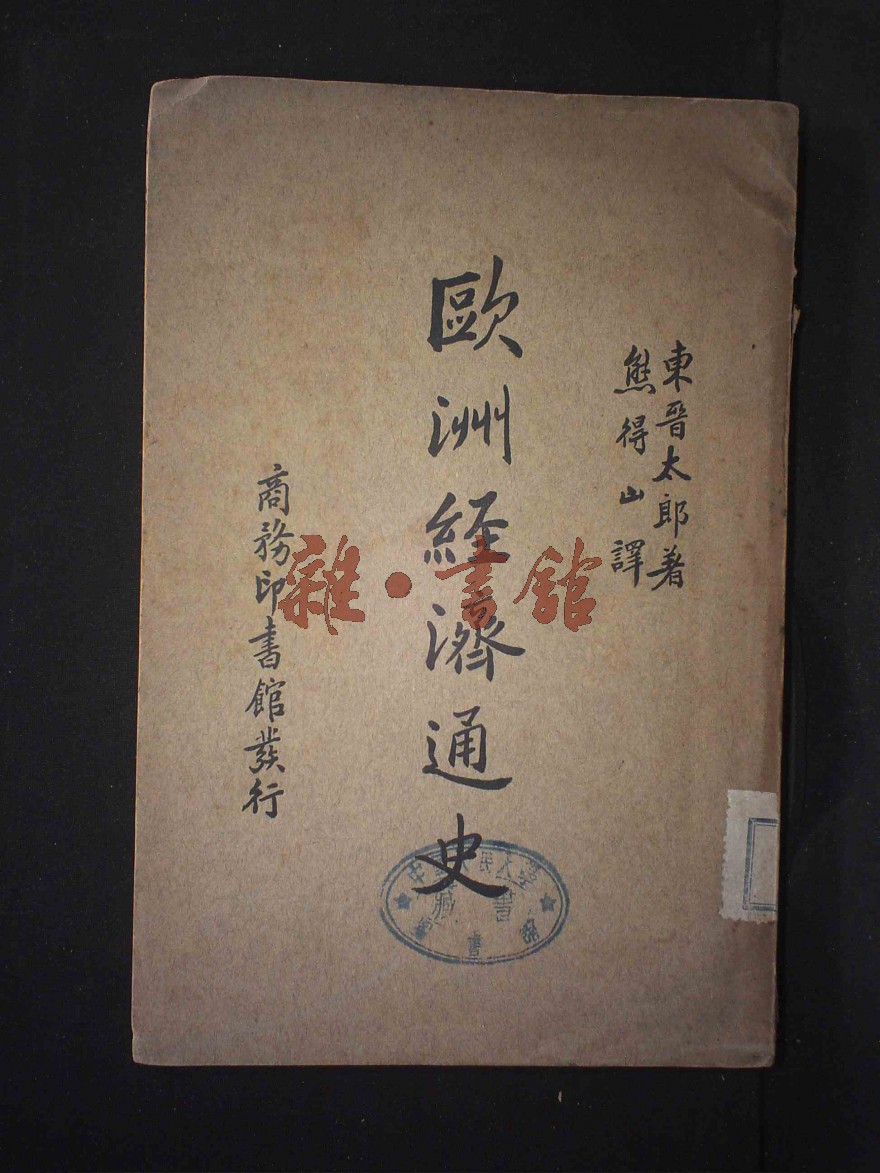 東晉太郎著
熊得山譯
歐洲経濟通史
商務印書館發行
雜·書館